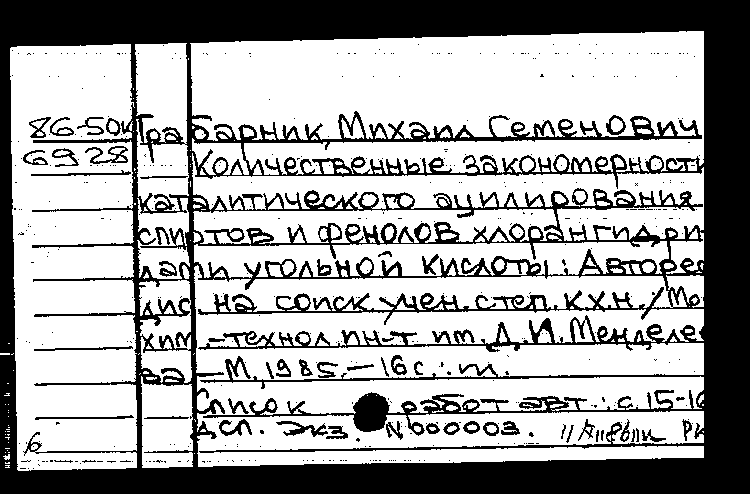 86-50к Грабарник, Михаил Семенович
6928 Количественные закономерности
каталитического ацилирования
спиртов и фенолов хлорангидри-
дами угольной кислоты: Авторе
дис. на соиск. учен. степ. к.х.н. /Мо
хим.-технол. ин-т им. Д. И. Менделее
ва. —М., 1985. — 16 с.: ил.
Список работ авт.: с. 15-16
ДСП. Экз. N 000003.
б